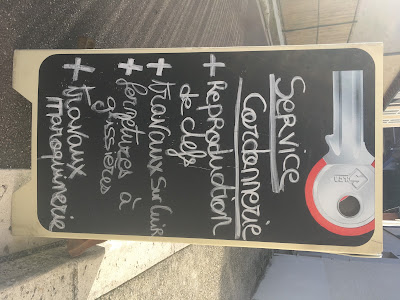 SERVICE
Cordonnerie
+ Reproduction
de clefs
+ travaux sur cuir
+ fermetures à
glissières
+ travaux
maroquinerie
SILCA